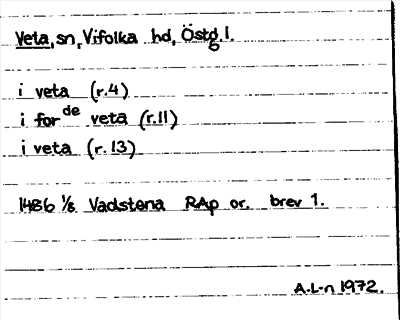 Veta, sn, Vifolka hd, Östg. l.
i veta (r.4)
i for de veta (r.11)
i veta (r.13)
1486 1/8 Vadstena RAp or. brev 1.
A.L-n 1972.